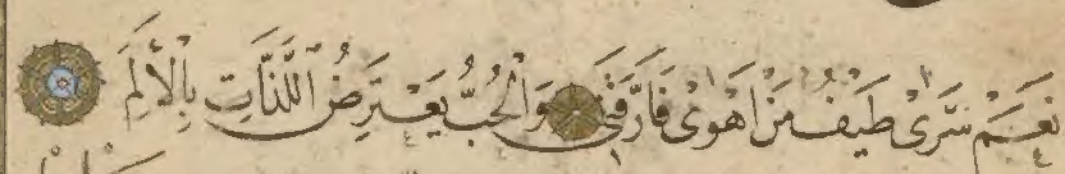 نَعَمْ سَرٰى طَيْفُ مَنْ اَهْوٰى فَاَرَّقَنِى وَالْحُبُّ يَعْتَرِضُ اللَّذَّاتِ بِالْاَلَمِ